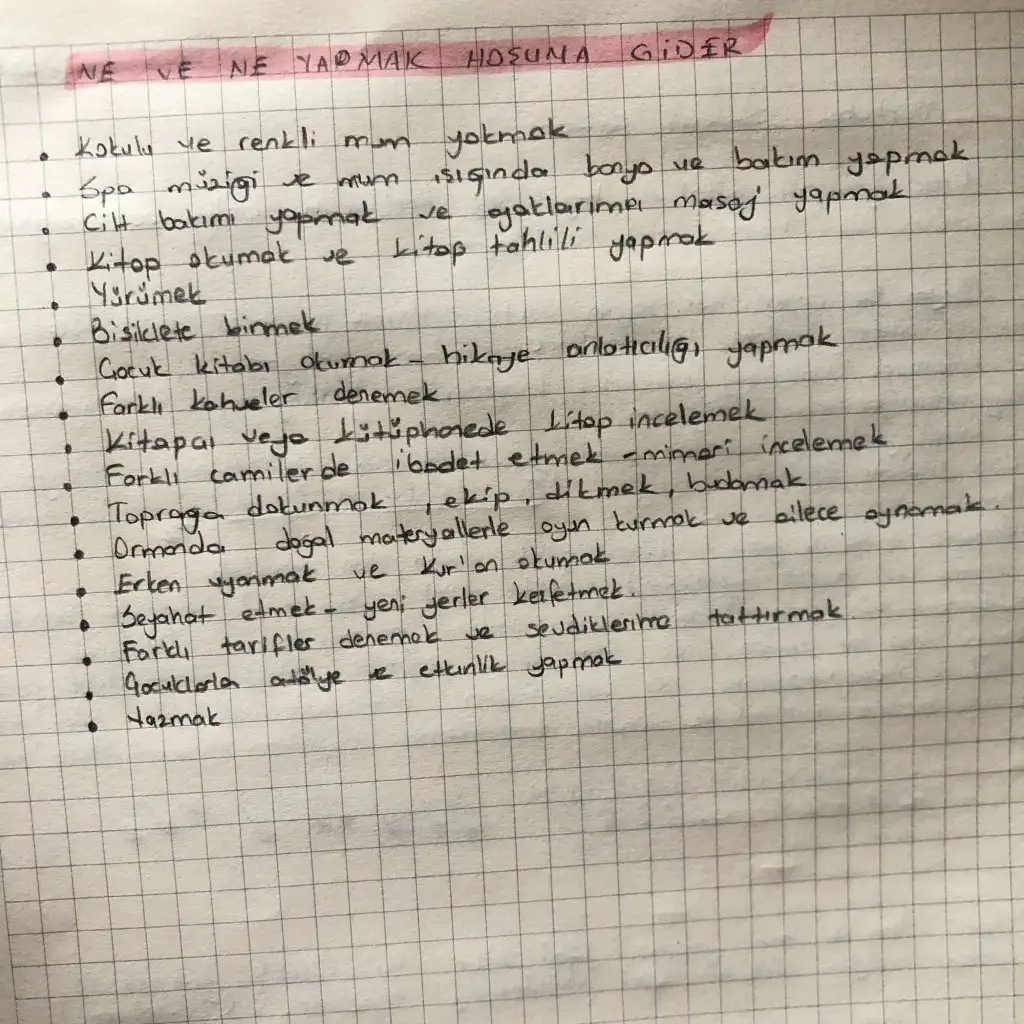 NE VE NE YAPMAK HOŞUMA GİDER
• Kokulu ve renkli mum yakmak
• Spa müziği ve mum ışığında banyo ve bakım yapmak
• Cilt bakımı yapmak ve ayaklarıma masaj yapmak
• Kitap okumak ve kitap tahlili yapmak
• Yürümek
• Bisiklete binmek
• Çocuk kitabı okumak - hikaye anlatıcılığı yapmak
• Farklı kahveler denemek
• Kitapçı veya kütüphanede kitap incelemek
• Farklı camilerde ibadet etmek - mimari incelemek
• Toprağa dokunmak, ekip, dikmek, budamak
• Ormanda doğal materyallerle oyun kurmak ve ailece oynamak.
• Erken uyanmak ve Kur'an okumak
• Seyahat etmek - yeni yerler keşfetmek.
• Farklı tarifler denemek ve sevdiklerime tattırmak
• Çocuklarla atölye ve etkinlik yapmak
• Yazmak